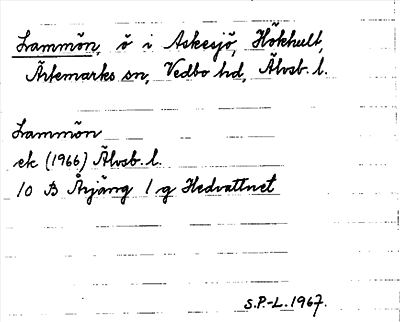 Lammön, ö i Askesjö, Hökhult,
Ärtemarks sn, Vedbo hd, Älvsb. l.
Lammön
ek (1966) Älvsb. l.
10 B Årjäng 1 g Hedvattnet
S.P.-L. 1967.